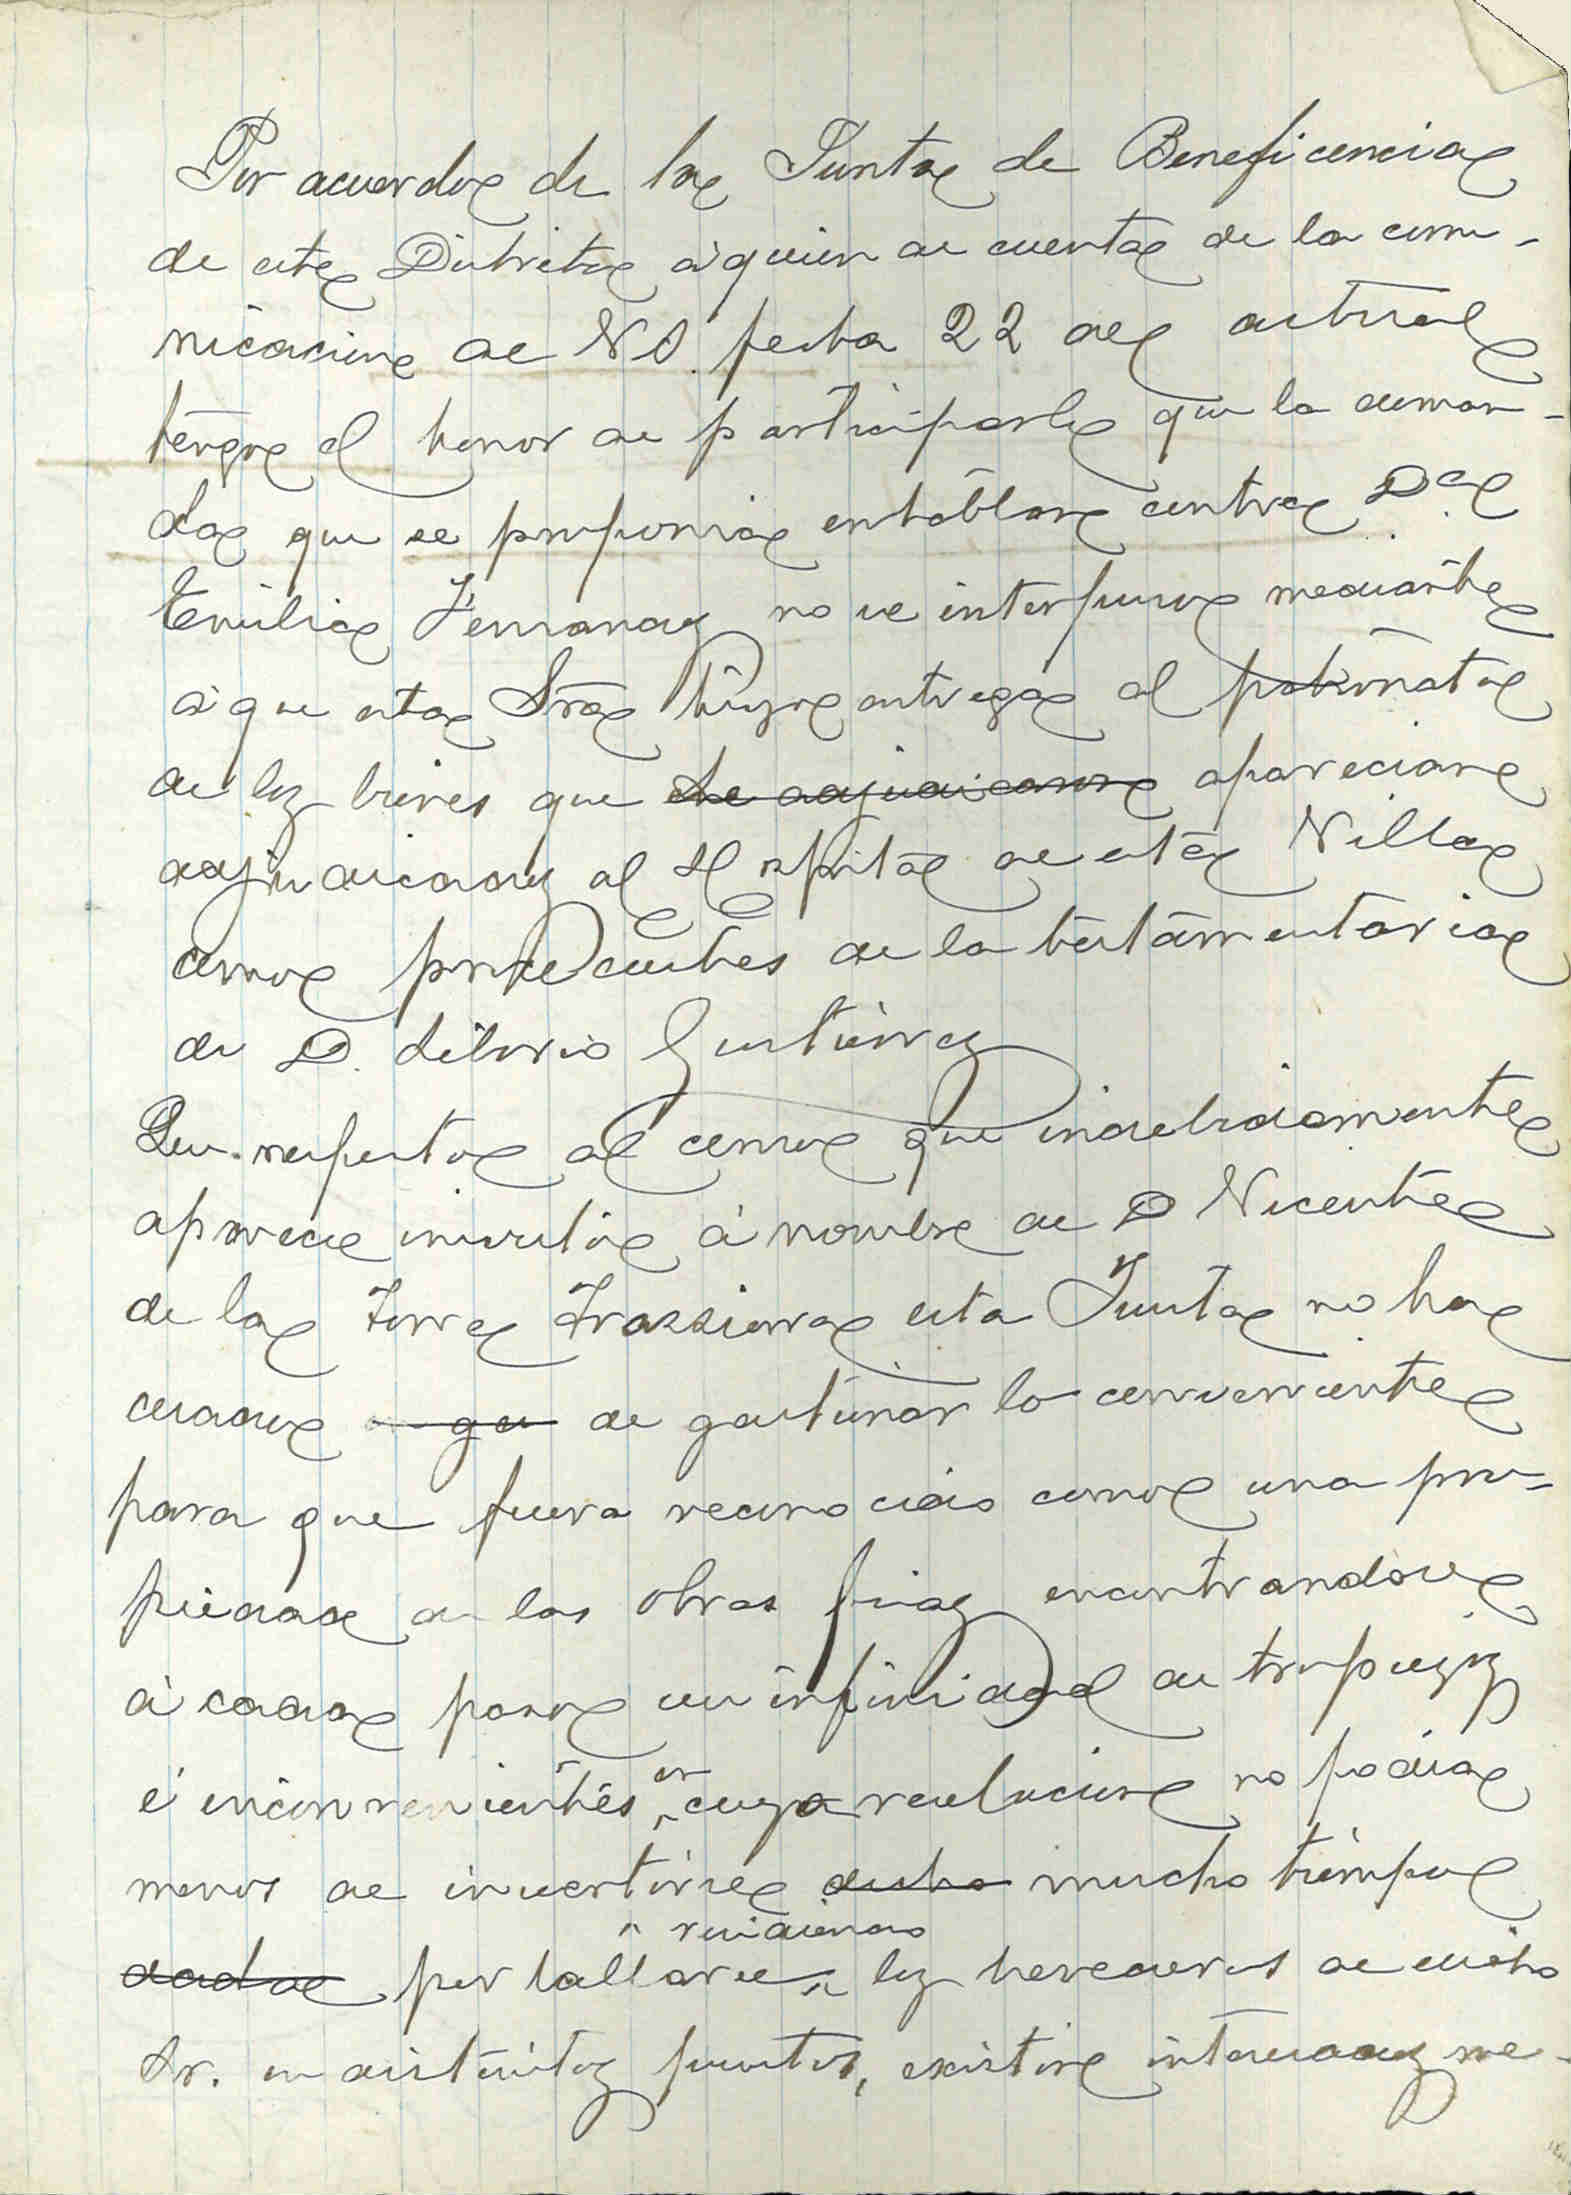 Por acuerdo de la Junta de Beneficencia
de este Distrito á quien dí cuenta de la comu-
nicacion de V.S. fecha 22 del actual
tengo el honor de participarle que la deman-
da que se proponia entablar contra Dª.
Emilia Fernandez no se interpuso mediante
á que esta Sra hizo entrega al patronato
de los bienes que se adjudicaron aparecian
adjudicados al Hospital de esta Villa
como procedentes de la testamentaria
de D. Liborio Gutierrez
Con respecto al censo que indebidamente
aparece inscrito á nombre de D Vicente
de la Torre Trassierra esta Junta no ha
cesado de gestionar lo conveniente
para que fuera reconocido como una pro-
piedad de las obras pias encontrandose
á cada paso un infinidad de tropiezos
é inconvenientes en cuya resolucion no podia
menos de invertirse dicho mucho tiempo
residiendo
dada por hallarse los herederos de dicho
Sr. en distintos puntos, existir interesados me-